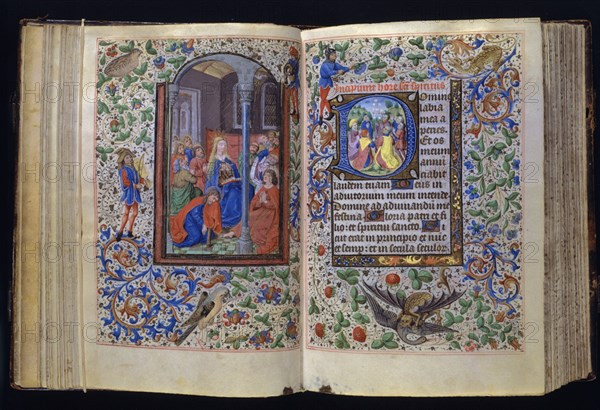 Incipiunt hore sci spiritus
Domine
labia
mea a
peries.
Et os
meum
annu
ciabit
laudem tuam Deus in
adiutorium meum intende
Domine ad adiuvandu me
festina Gloria patri et fi
lio: et spiritui sancto. Si
cut erat in principio et nuc
et semp: et in secula seculor